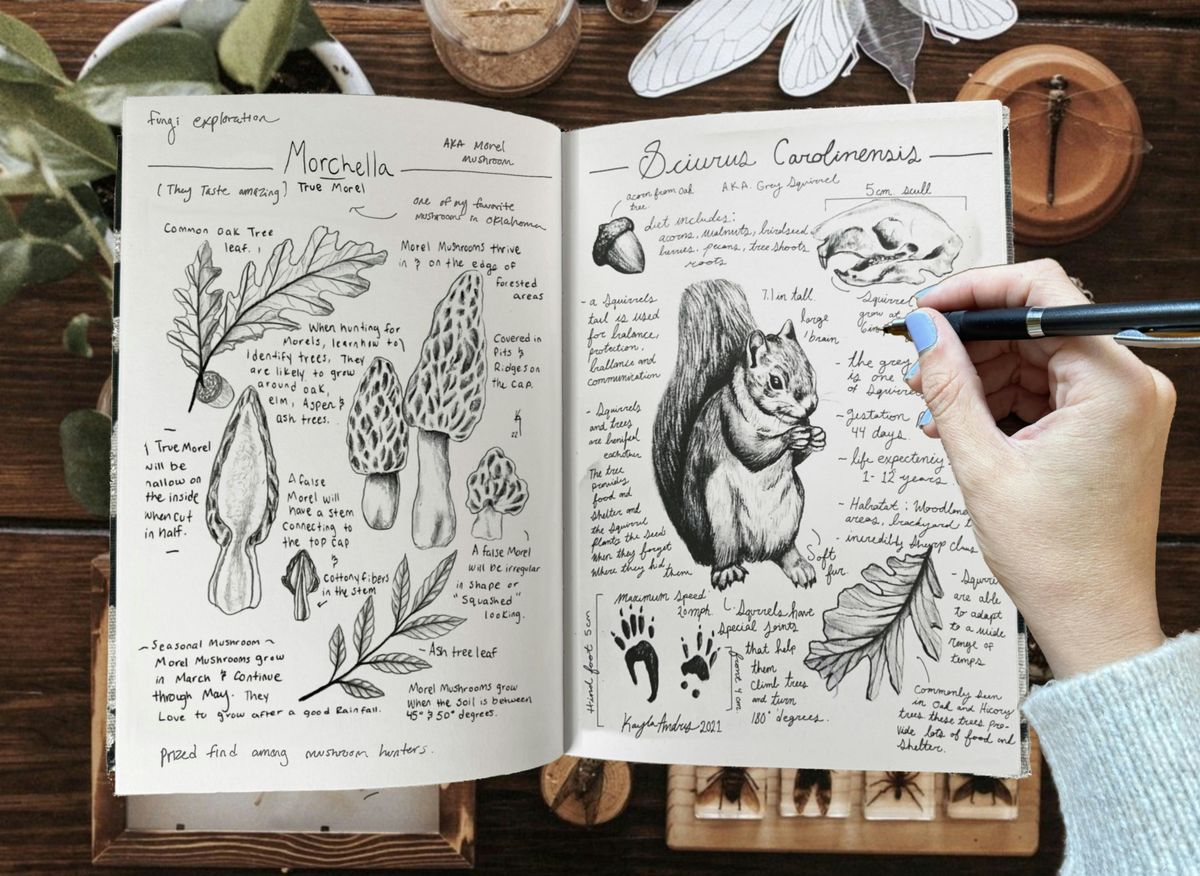 Fungi exploration
Morchella
AKA Morel
mushroom
(They Taste amazing) True Morel
one of my favorite
mushrooms in Oklahoma
Common Oak Tree
leaf.
Morel Mushrooms thrive
in & on the edge of
forested
areas
When hunting for
Morels, learn how to
Identify trees, They
are likely to grow
around oak,
elm, Aspen &
ash trees.
Covered in
Pits &
Ridges on
the cap.
True Morel
will be
hallow on
the inside
when cut
in half.
A false
Morel will
have a stem
connecting to
the top cap
&
Cottony fibers
in the stem
A false Morel
will be irregular
in shape or
"Squashed"
looking.
~ Seasonal Mushroom ~
Morel Mushrooms grow
in March & Continue
through May. They
Love to grow after a good Rainfall.
~ Ash tree leaf
Morel Mushrooms grow
When the soil is between
45° & 50° degrees.
Prized find among mushroom hunters.
Sciurus Carolinensis
acorn from oak
tree.
A.K.A. Grey Squirrel
5cm. scull
diet includes:
acorns, walnuts, birdseed
berries, pecans, tree shoots
roots
- a Squirrels
tail is used
for balance,
protection,
ballance and
communication
7.1 in tall.
large
brain
Squirrel
grow at
6in
- the grey
is one
of Squirrel
- gestation
44 days.
- life expecteniy
1-12 years
- Habatat: Woodland
areas, backyard
- incredibly sharp claws
- Squirrels
and trees
are benifed
eachother
The tree
provides
food and
shelter and
the Squirrel
Plants the Seed
When they forget
Where they hid them
Soft
fur.
Maximum Speed
20mph.
Hind foot 5cm
front 4 cm.
Squrrels have
Special joints
that help
them
Climb trees
and turn
180° degrees.
- Squirre
are able
to adapt
to a wide
range of
temps
Commonly seen
in Oak and Hickory
trees these trees pro-
vide lots of food and
Shelter.
Kayla Andrus 2021